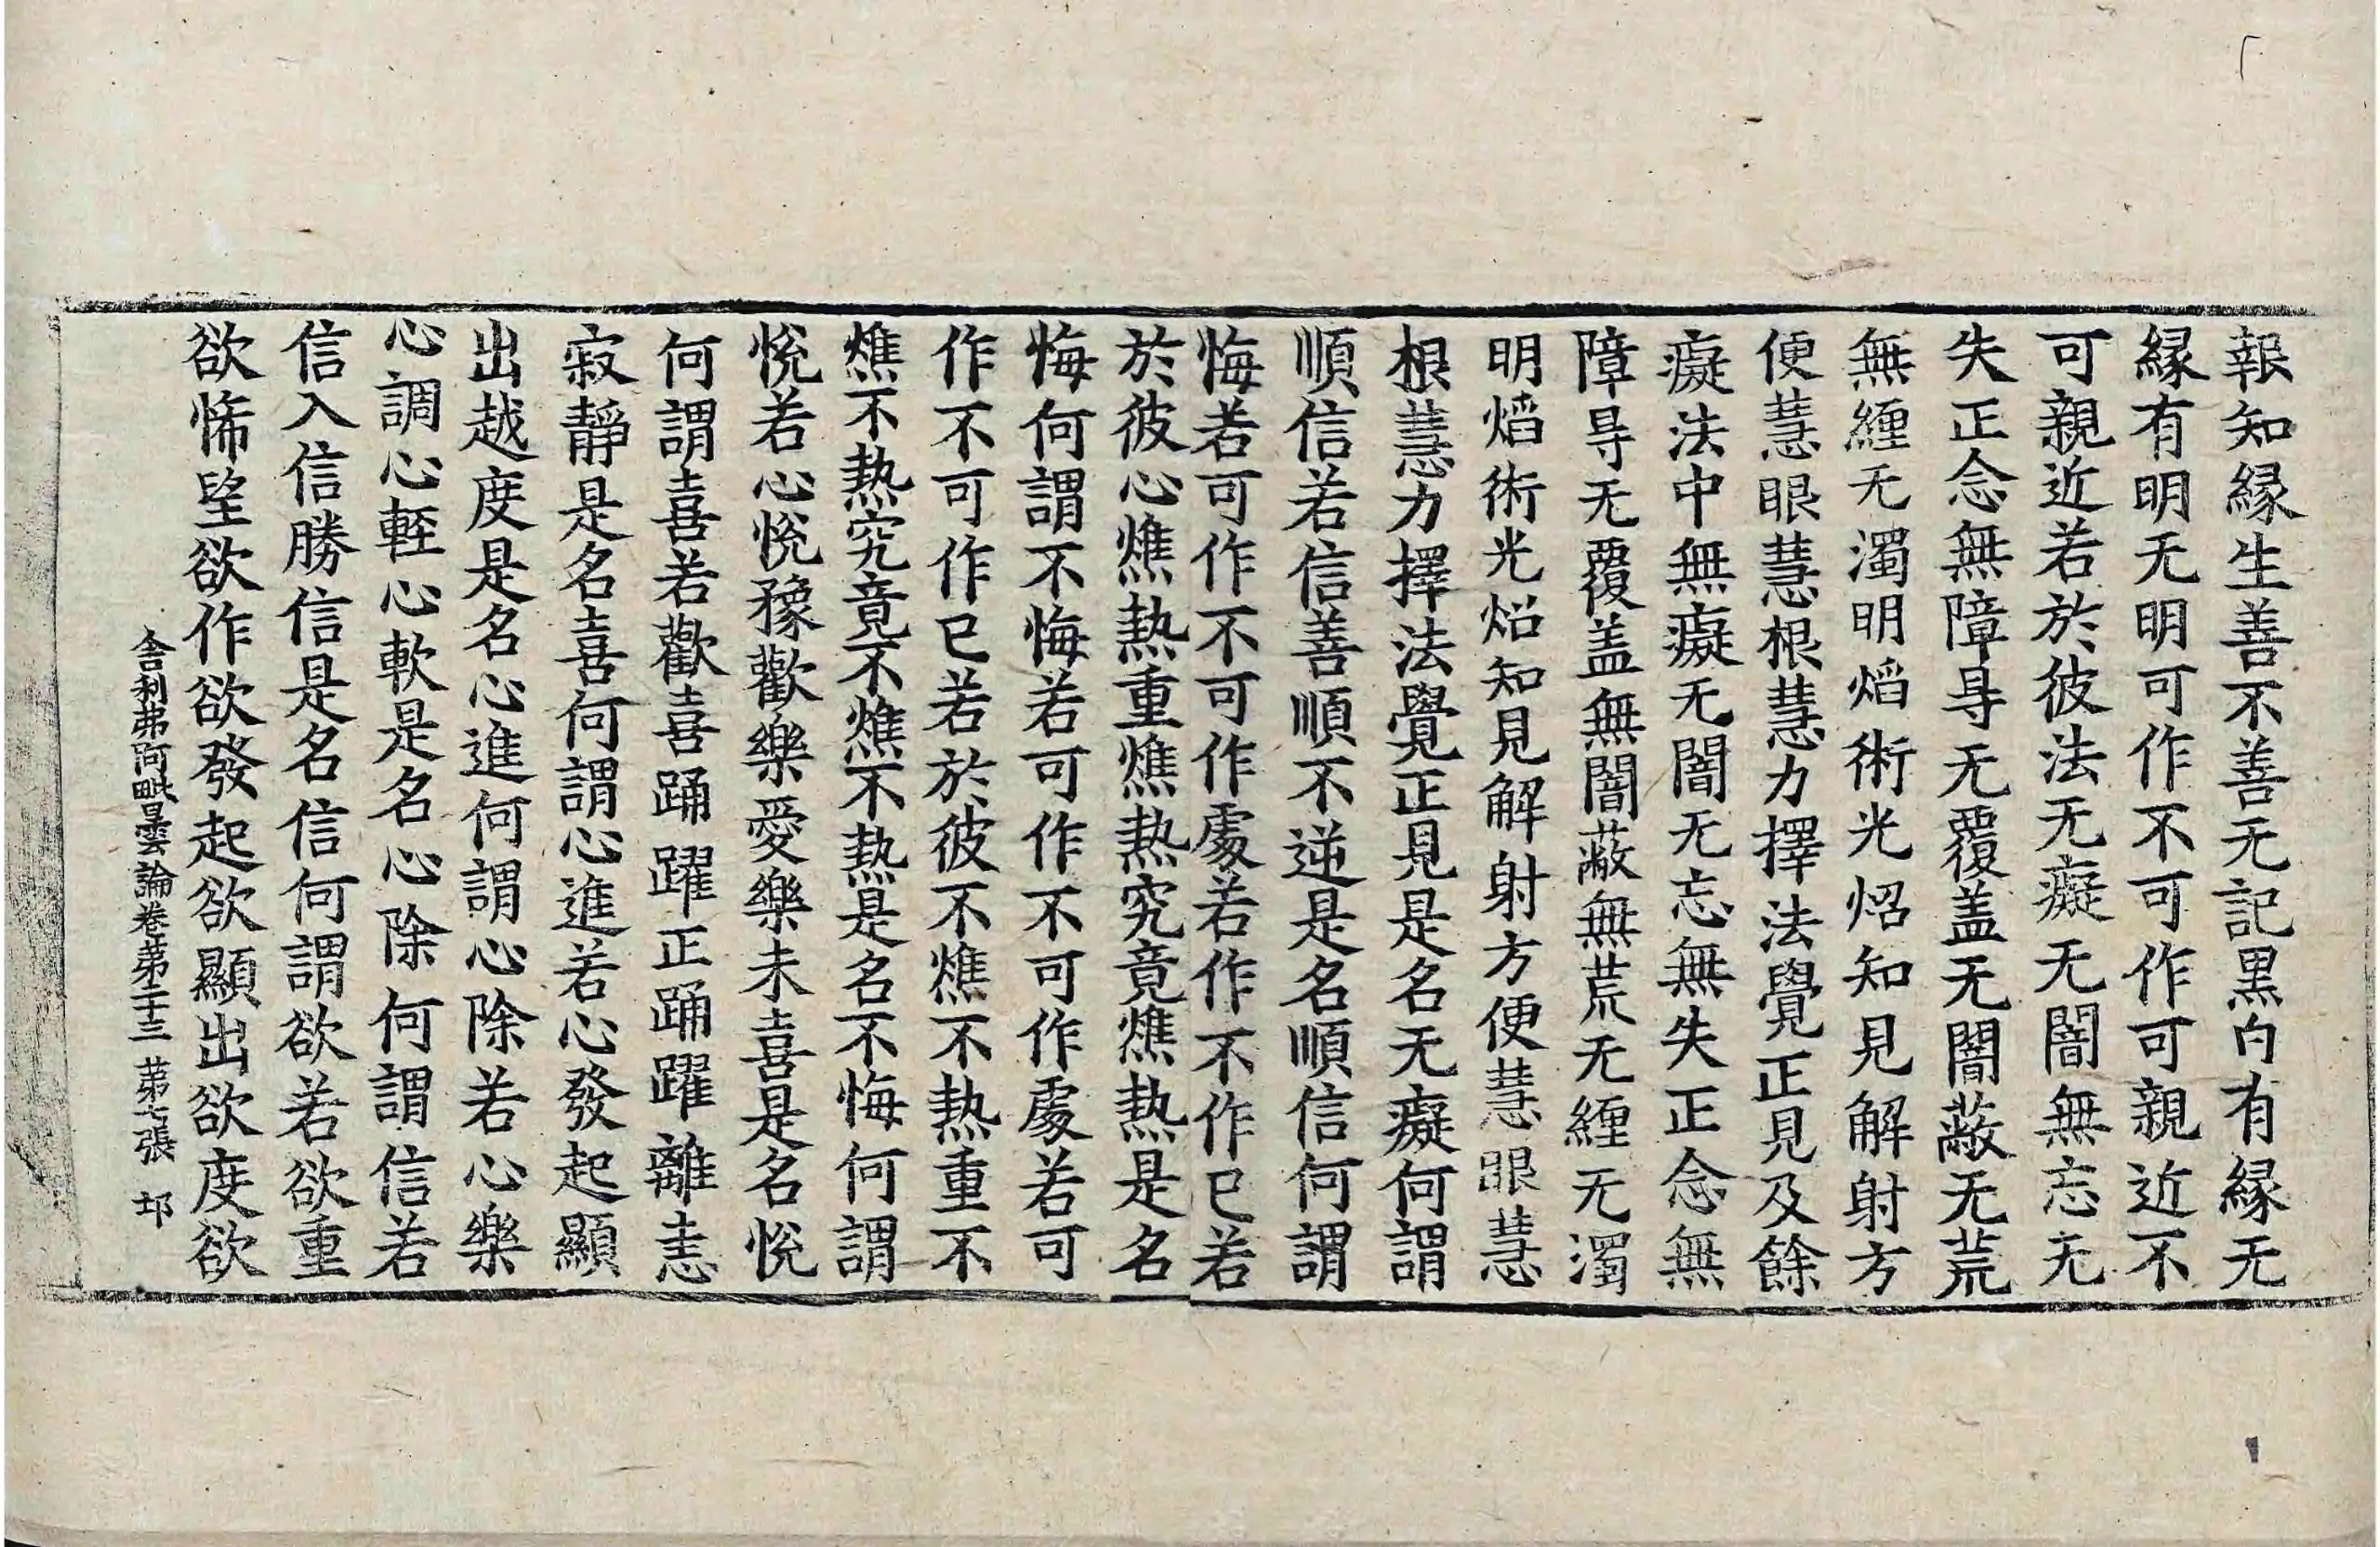 報知緣生善不善无記黑白有緣无
緣有明无明可作不可作可親近不
可親近若於彼法无癡无闇無忘无
失正念無障㝵无覆盖无闇蔽无荒
無纏无濁明熖術光炤知見解射方
便慧眼慧根慧力擇法覺正見及餘
癡法中無癡无闇无忘無失正念無
障㝵无覆盖無闇蔽無荒无纏无濁
明熖術光炤知見解射方便慧眼慧
根慧力擇法覺正見是名无癡何謂
順信若信善順不逆是名順信何謂
悔若可作不可作處若作不作已若
於彼心燋熱重燋熱究竟燋熱是名
悔何謂不悔若可作不可作處若可
作不可作已若於彼不燋不熱重不
燋不熱究竟不燋不熱是名不悔何謂
悅若心悅豫歡樂愛樂未喜是名悅
何謂喜若歡喜踊躍正踊躍離恚
寂靜是名喜何謂心進若心發起顯
出越度是名心進何謂心除若心樂
心調心輕心軟是名心除何謂信若
信入信勝信是名信何謂欲若欲重
欲悕望欲作欲發起欲顯出欲度欲
舍利弗阿毗曇論卷第二十三 第七張 邙